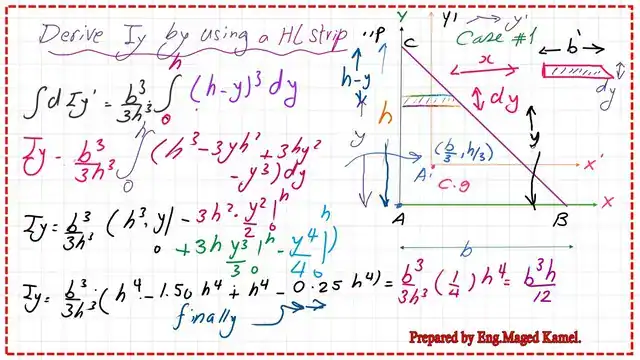 Derive Iy by using a HL strip
∫dIy' = b³/3h³ ∫₀ʰ (h-y)³ dy
Iy = b³/3h³ ∫₀ʰ (h³ - 3yh² + 3hy² - y³) dy
Iy = b³/3h³ (h³·y|₀ - 3h²·y²/2|₀ʰ + 3h y³/3|₀ʰ - y⁴/4|₀ʰ)
Iy = b³/3h³ (h⁴ - 1.50h⁴ + h⁴ - 0.25h⁴) = b³/3h³ (1/4) h⁴ = b³h/12
finally
Y
y'
y'
Case #1
C
h-y
h
y
x
dy
b'
dy
y
(b/3, h/3)
A'
c.g
x'
A
B
x
b
Prepared by Eng.Maged Kamel.